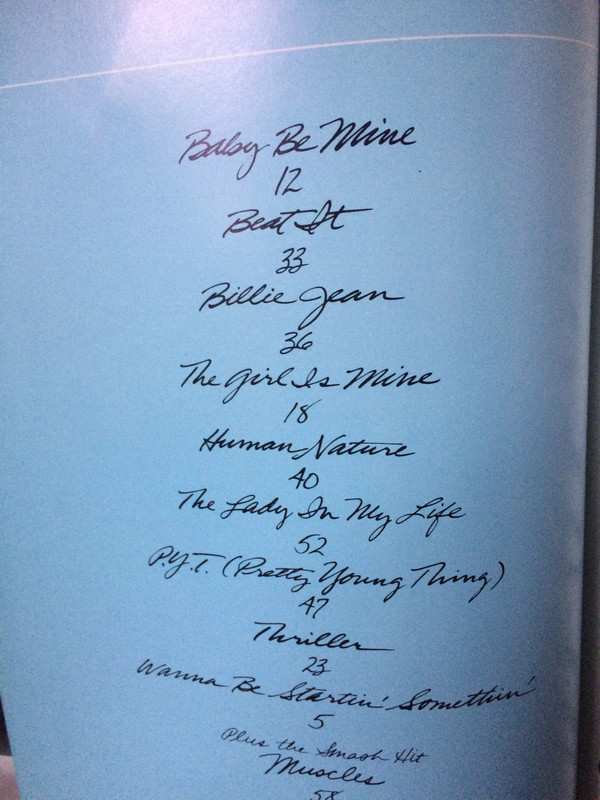 Baby Be Mine
12
Beat It
33
Billie Jean
36
The Girl Is Mine
18
Human Nature
40
The Lady In My Life
52
P.Y.T. (Pretty Young Thing)
47
Thriller
23
Wanna Be Startin' Somethin'
5
Plus the Smash Hit
Muscles
58